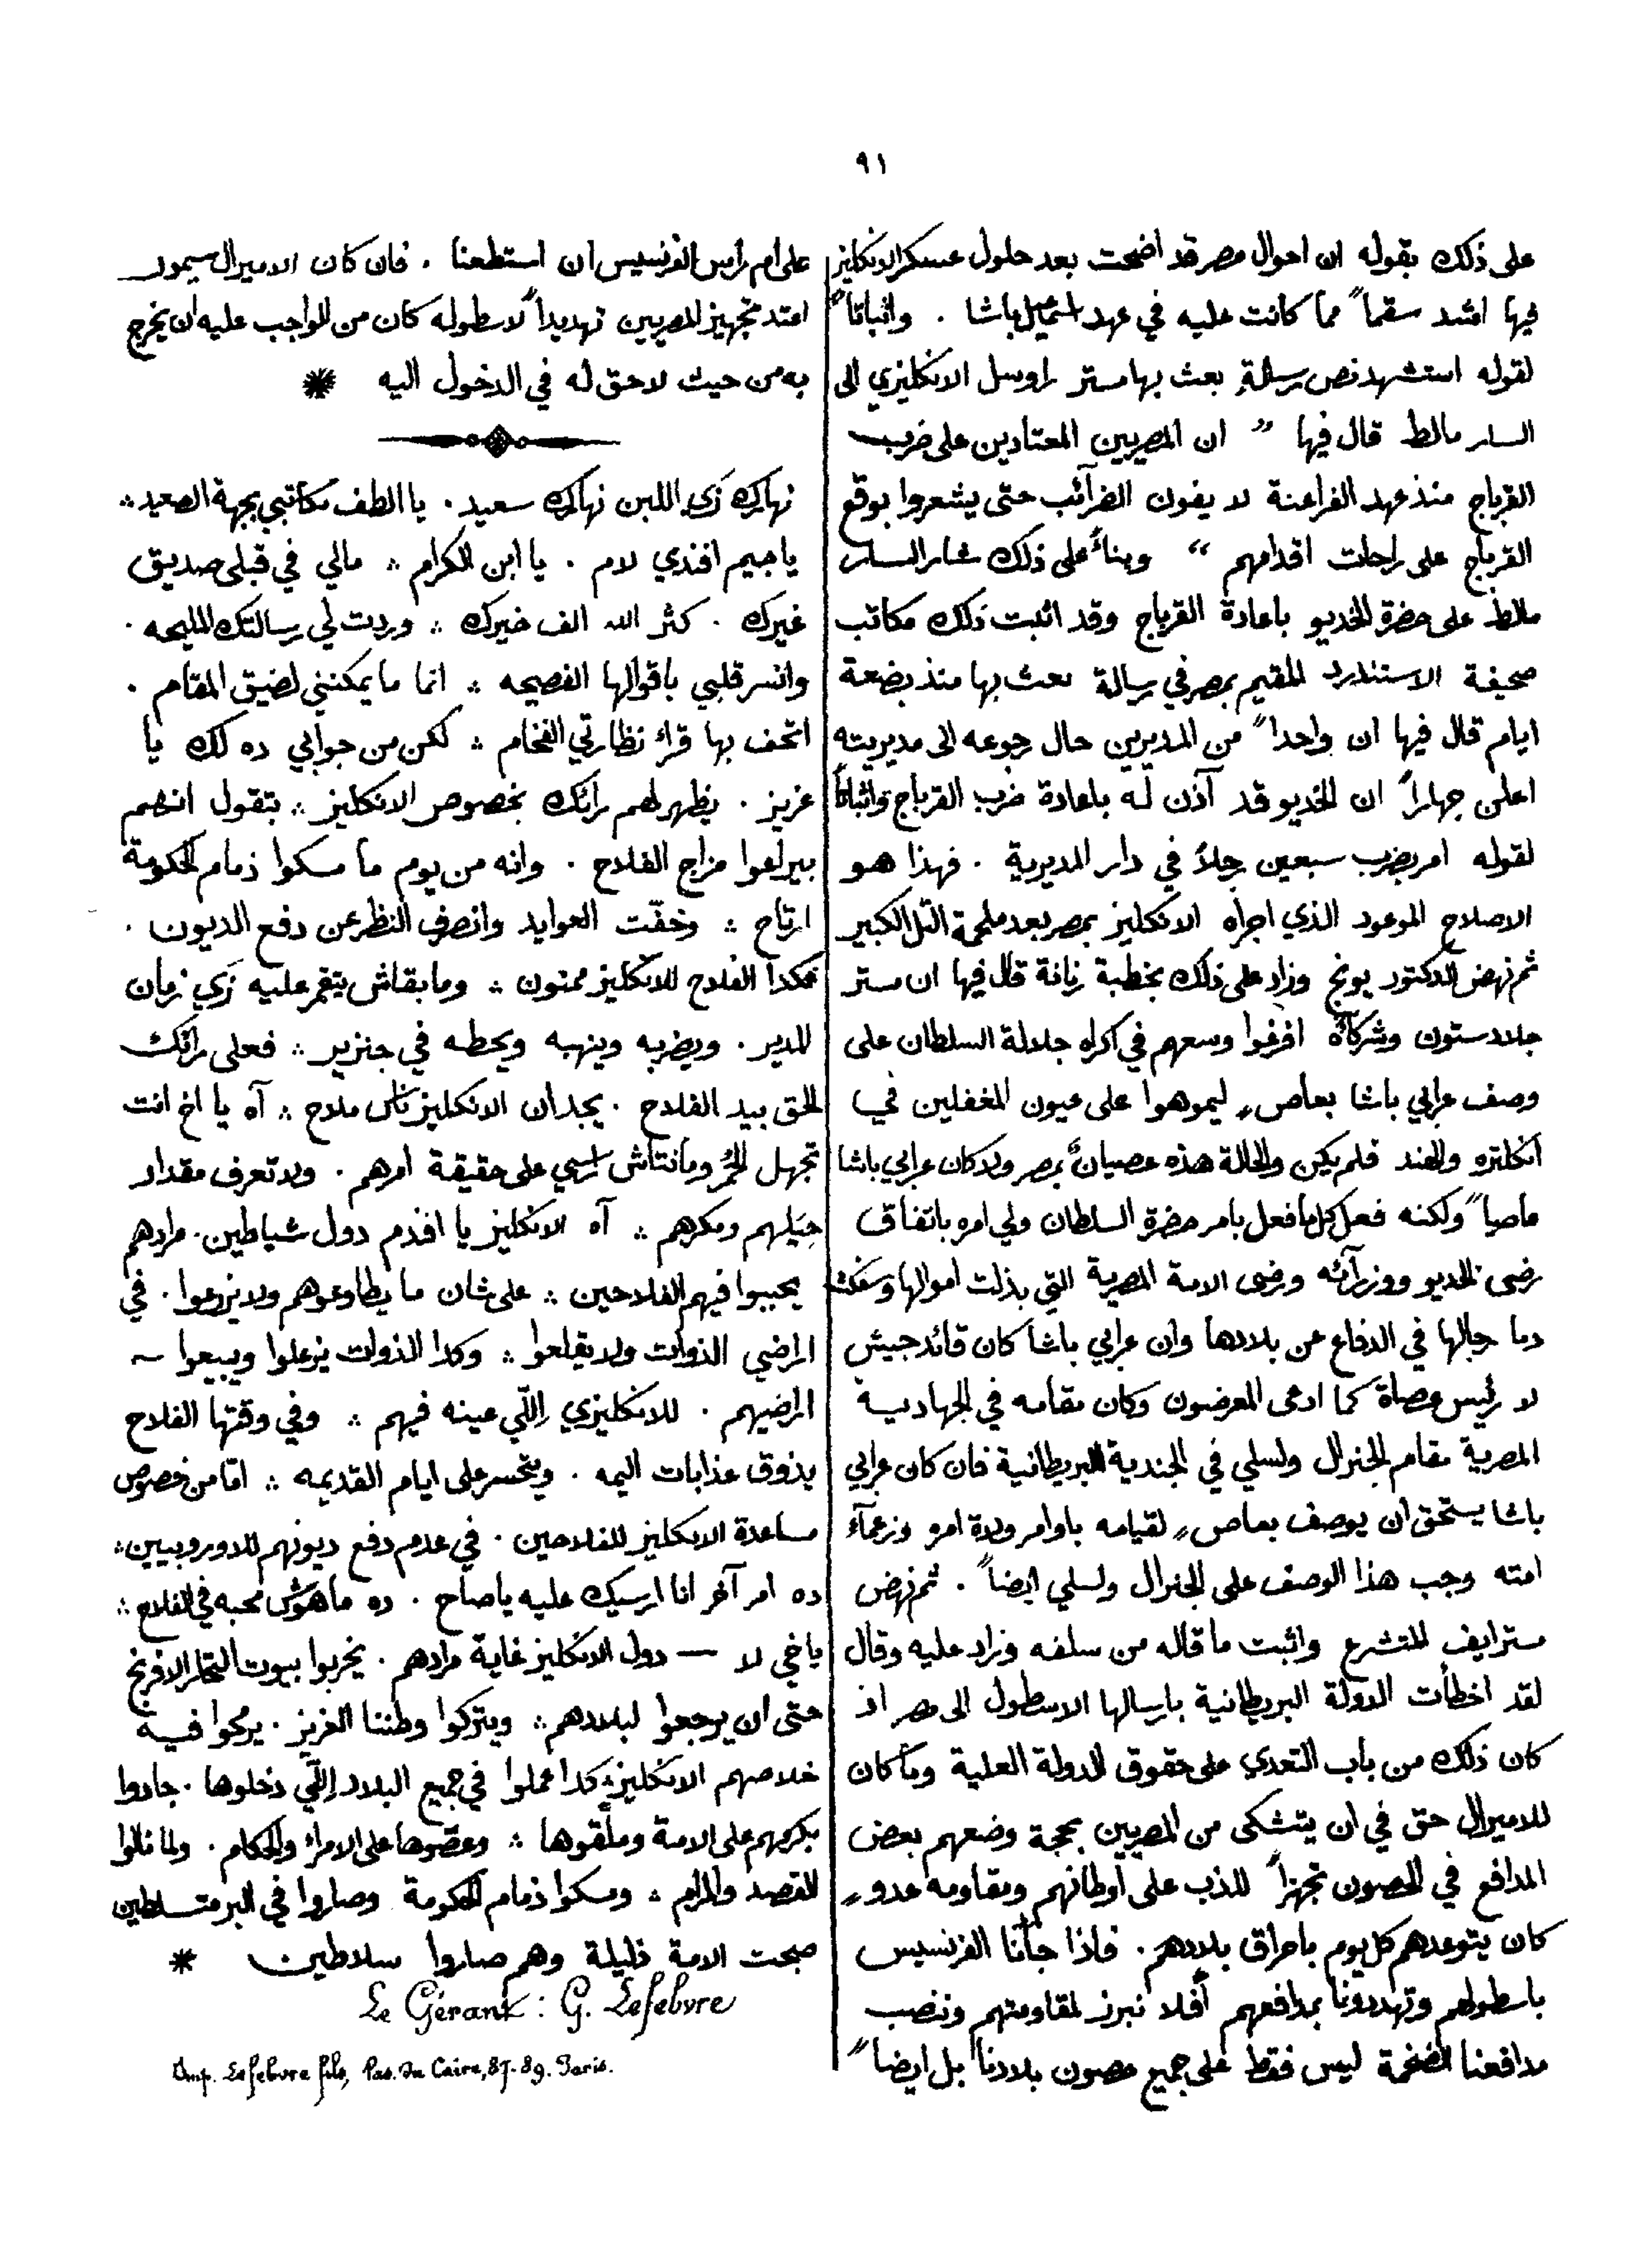 ٩١
على ذلك بقوله ان احوال مصر قد اضحت بعد حلول عسكر الانكليز
فيها اشد سقماً مما كانت عليه في عهد اسمعيل باشا . واثباتاً
لقوله استشهد نص رسالةٍ بعث بها مستر راوسل الانكليزي الى
السار مالط قال فيها " ان المصريين المعتادين على ضرب
القرباج منذ عهد الفراعنة لا يفون الضرآئب حتى يشعروا بوقع
القرباج على راحات اقدامهم " وبنآءً على ذلك شار السار
مالط على حضرة الخديو باعادة القرباج وقد اثبت ذلك مكاتب
صحيفة الاستندرد المقيم بمصر في رسالة بعث بها منذ بضعة
ايام قال فيها ان واحداً من المديرين حال رجوعه الى مديريته
اعلن جهاراً ان الخديو قد آذن له باعادة ضرب القرباج واثباتاً
لقوله امر بضرب سبعين رجلاً في دار المديرية . فهذا هو
الاصلاح الموعود الذي اجراه الانكليز بمصر بعد ملحمة التل الكبير
ثم نهض الدكتور يونج وزاد على ذلك بخطبة رنانة قال فيها ان ستر
جلادستون وشركآه افرغوا وسعهم في اكراه جلالة السلطان على
وصف عرابي باشا بعاصٍ ليموهوا على عيون المغفلين في
انكلتره والهند فلم يكن والحالة هذه عصيانٌ بمصر ولا كان عرابي باشا
عاصياً ولكنه فعل كل ما فعل بامر حضرة السلطان ولي امره باتفاق
رضى الخديو ووزرآئه ورضى الامة المصرية التي بذلت اموالها وسفكت
دما رجالها في الدفاع عن بلادها وان عرابي باشا كان قائد جيش
لا رئيس عصاة كما ادعى المعرضون وكان مقامه في الجهادية
المصرية مقام الجنرال ولسلي في الجندية البريطانية فان كان عرابي
باشا يستحق ان يوصف بعاصٍ لقيامه باوامر ولاة امره وزعمآء
امته وجب هذا الوصف على الجنرال ولسلي ايضاً . ثم نهض
مستر ايف المتشرع واثبت ما قاله من سلفه وزاد عليه وقال
لقد اخطأت الدولة البريطانية بارسالها الاسطول الى مصر اذ
كان ذلك من باب التعدي على حقوق الدولة العلية وما كان
للاميرال حق في ان يتشكى من المصريين بحجة وضعهم بعض
المدافع في الحصون تجهزاً للذب على اوطانهم ومقاومة عدوٍ
كان يتوعدهم كل يوم باحراق بلادهم . فاذا جآنا الفرنسيس
باسطولهم وتهددونا بمدافعهم أفلا نبرز لمقاومتهم وننصب
مدافعنا الضخمة ليس فقط على جميع حصون بلادنا بل ايضاً
على ام رأس الفرنسيس ان استطعنا . فان كان الاميرال سيمور
اعتد تجهيز المصريين تهديداً لاسطوله كان من الواجب عليه ان يخرج
به من حيث لا حق له في الدخول اليه *
نهارك زَي اللبن نهارك سعيد . يا الطف مكاتبي بجهة الصعيد ∴
يا جيم افندي لام . يا ابن الكرام ∴ مالي في قبلي صديق
غيرك . كثر الله الف خيرك ∴ وردت لي رسالتك المليحه .
وانسر قلبي باقوالها الفصيحه ∴ انما ما يمكنني لضيق المقام .
اتحف بها قراء نظارتي الفخام ∴ لكن من جوابي ده لك يا
عزيز . يظهر لهم رائك بخصوص الانكليز ∴ بتقول انهم
بيراعوا مزاج الفلاح . وانه من يوم ما مسكوا زمام الحكومة
ارتاح ∴ وخفّت العوايد وانصرف النظر عن دفع الديون .
فكدا الفلاح للانكليز ممنون ∴ وما بقاش يتغمر عليه زَي زمان
المدير . ويضربه وينهبه ويحطه في جنزير ∴ فعلى رائك
الحق بيد الفلاح . يجد ان الانكليز ناس ملاح ∴ آه يا اخ انت
تجهل الحُمر ومانتاش راسي على حقيقة امرهم . ولا تعرف مقدار
حِيَلهم ومكرهم ∴ آه الانكليز يا افندم دول شياطين . مرادهم
يحببوا فيهم الفلاحين ∴ على شان ما يطاوعوهم ولا يزرعوا . في
اراضي الذوات ولا يقلعوا ∴ وكدا الذوات يزعلوا ويبيعوا ~
اراضيهم . للانكليزي اِللّي عينه فيهم ∴ وفي وقتها الفلاح
يذوق عذابات اليمه . ويتحسر على ايام القديمه ∴ امّا من خصوص
مساعدة الانكليز للفلاحين . في عدم دفع ديونهم للاوروبيين ∴
ده امر آخر انا ارسيك عليه يا صاح . ده ماهوش محبه في الفلاح ∴
ياخي لا — دول الانكليز غاية مرادهم . يخربوا بيوت التجار الافرنج
حتى ان يرجعوا لبلادهم ∴ ويتركوا وطننا العزيز . يرمحوا فيه
خلاصهم الانكليز ∴ كدا عملوا في جميع البلاد اِللّي دخلوها . جادوا
بكرمهم على الامة وملّقوها ∴ وعصّوها على الامراء والحكام . ولما نالوا
القصد والمرام ∴ ومسكوا زمام الحكومة وصاروا في البر متسلطين
صبحت الامة ذليلة وهم صاروا سلاطين *
Le Gérant : G. Lefebvre
Imp. Lefebvre fils, Pas. du Caire, 87-89. Paris.